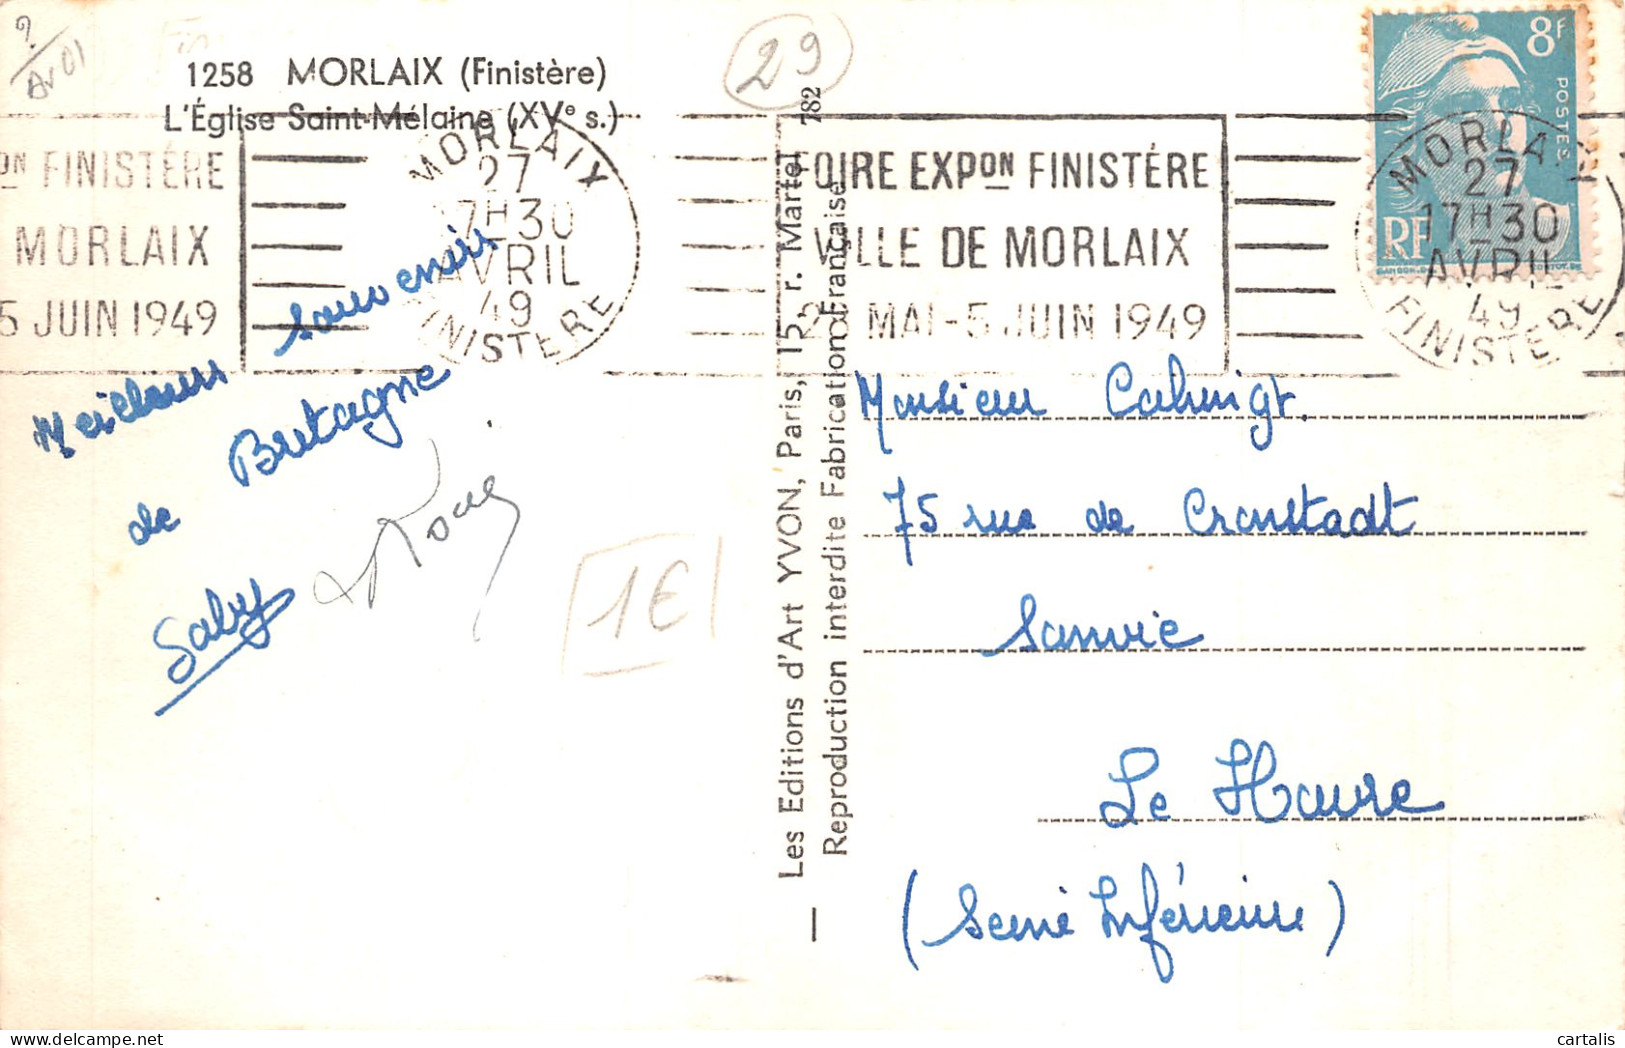 ?
Av 01
1258 MORLAIX (Finistère)
L'Église Saint-Mélaine (XVe s.)
29
782
8F
POSTES
RF
ON FINISTÈRE
MORLAIX
5 JUIN 1949
MORLAIX
27
17H30
AVRIL
49
FINISTERE
FOIRE EXPON FINISTÈRE
VILLE DE MORLAIX
MAI-5 JUIN 1949
MORLAIX
27
17H30
AVRIL
49
FINISTERE
Meilleurs souvenirs
de Bretagne
Gaby
1€
Les Editions d'Art YVON, Paris, 15, r. Martel
Reproduction interdite Fabrication Française
Monsieur
75 rue de Cronstadt
Sanvic
Le Havre
(Seine Inférieure)
cartalis